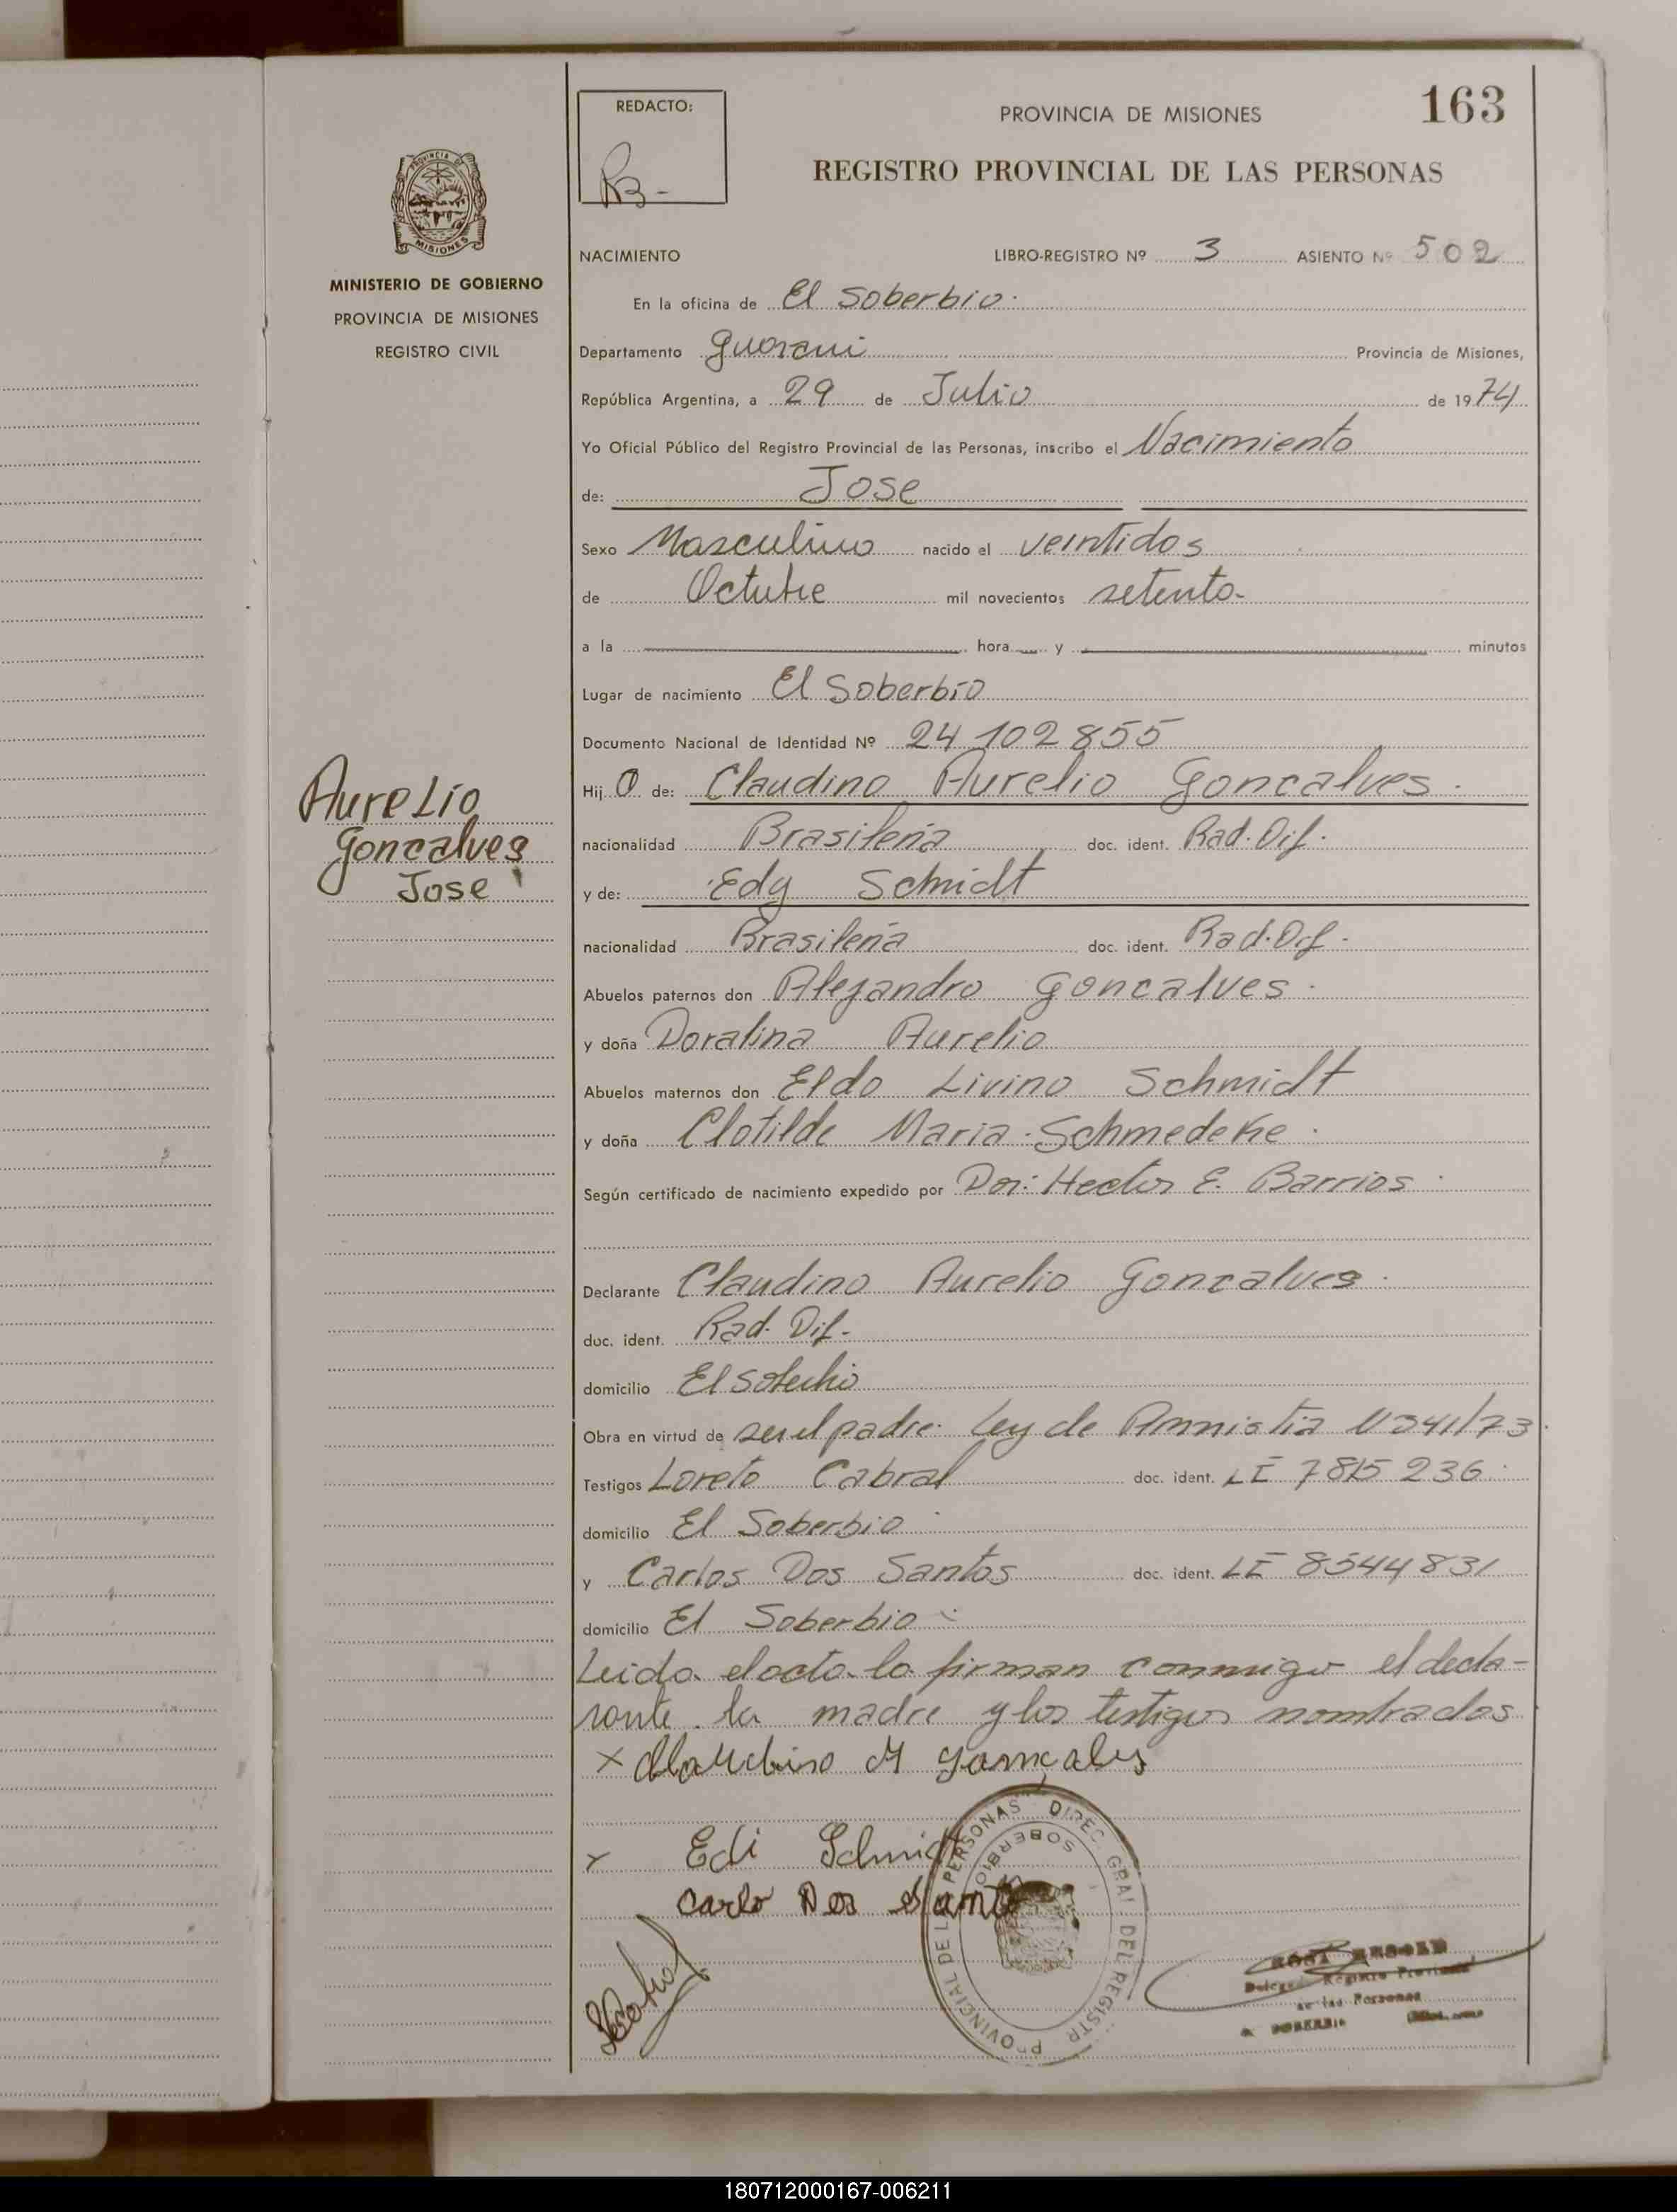 163
REDACTO:
PROVINCIA DE MISIONES
REGISTRO PROVINCIAL DE LAS PERSONAS
PROVINCIA DE
MISIONES
MINISTERIO DE GOBIERNO
PROVINCIA DE MISIONES
REGISTRO CIVIL
NACIMIENTO LIBRO-REGISTRO Nº 3 ASIENTO Nº 502
En la oficina de El Soberbio.
Departamento Guarani Provincia de Misiones,
República Argentina, a 29 de Julio de 1974
Yo Oficial Público del Registro Provincial de las Personas, inscribo el Nacimiento
de: Jose
Sexo Masculino nacido el veintidos
de Octubre mil novecientos setenta
a la hora y minutos
Lugar de nacimiento El Soberbio
Documento Nacional de Identidad Nº 24 102 855
Hij o de: Claudino Aurelio Goncalves.
Aurelio
Goncalves
Jose
nacionalidad Brasileña doc. ident. Rad. Dif.
y de: Edy Schmidt
nacionalidad Brasileña doc. ident. Rad. Dif.
Abuelos paternos don Alejandro Goncalves.
y doña Doralina Aurelio
Abuelos maternos don Eldo Livino Schmidt
y doña Clotilde Maria Schmedeke.
Según certificado de nacimiento expedido por Don: Hector E. Barrios
Declarante Claudino Aurelio Goncalves.
doc. ident. Rad. Dif.
domicilio El Soberbio
Obra en virtud de ser el padre. Ley de Amnistia 341/73.
Testigos Loreto Cabral doc. ident. LE 7815 236.
domicilio El Soberbio
y Carlos Dos Santos doc. ident. LE 8544831
domicilio El Soberbio
Leida el acta la firman conmigo el decla-
rante la madre y los testigos nombrados
x Claudino A Gonçalves
x Edi Schmidt
Carlo Dos Santo
DIREC. GRAL. DEL REGISTR PROVINCIAL DE LAS PERSONAS
SOBERBIO
Registro Provincial
de las Personas
SOBERBIO
180712000167-006211